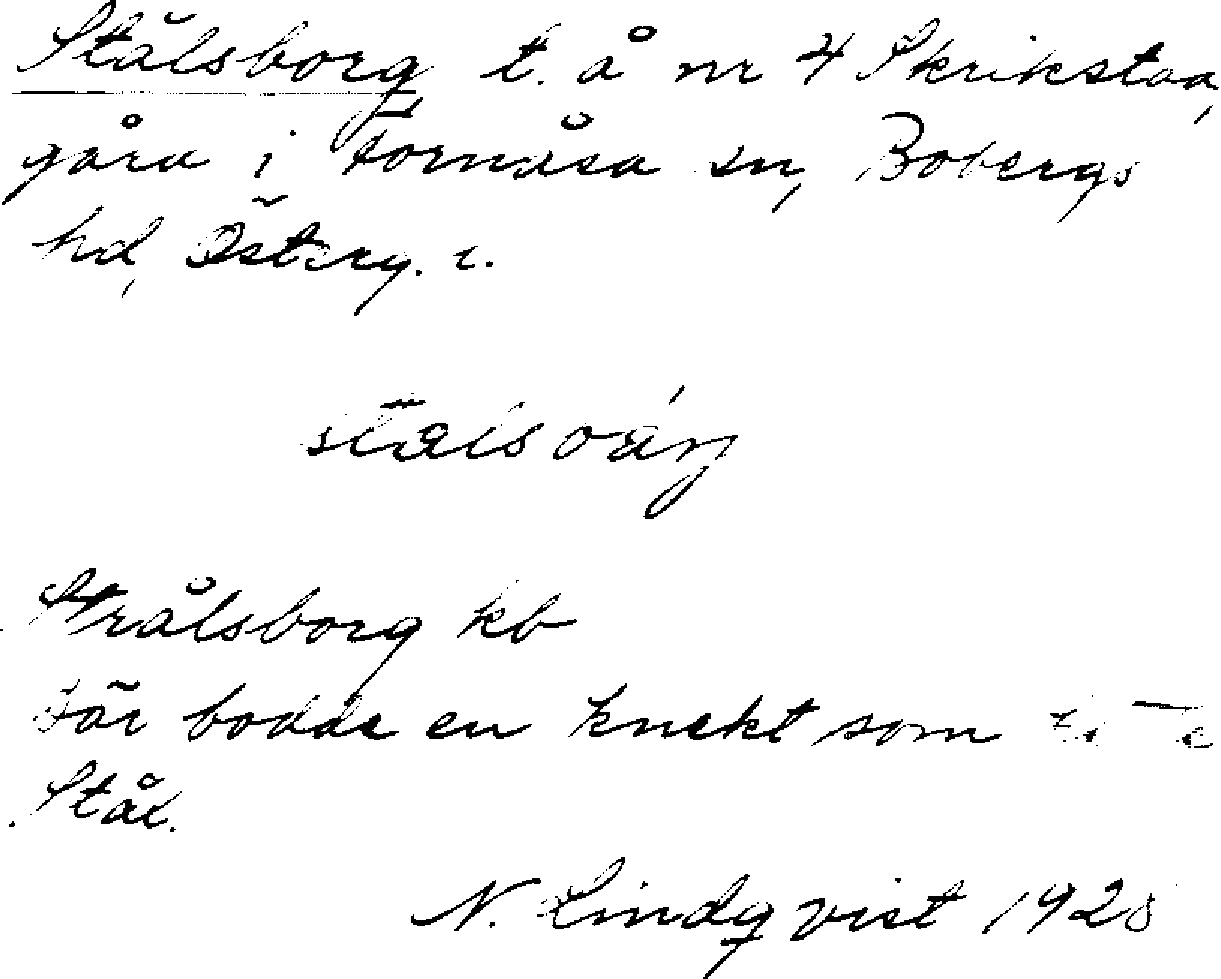 Stålsborg t. å nr 4 Skrikstad,
gård i Fornåsa sn, Bobergs
hd, Österg. l.
Strålsborg kb
Där bodde en knekt som
Stål.
N. Lindqvist 1925